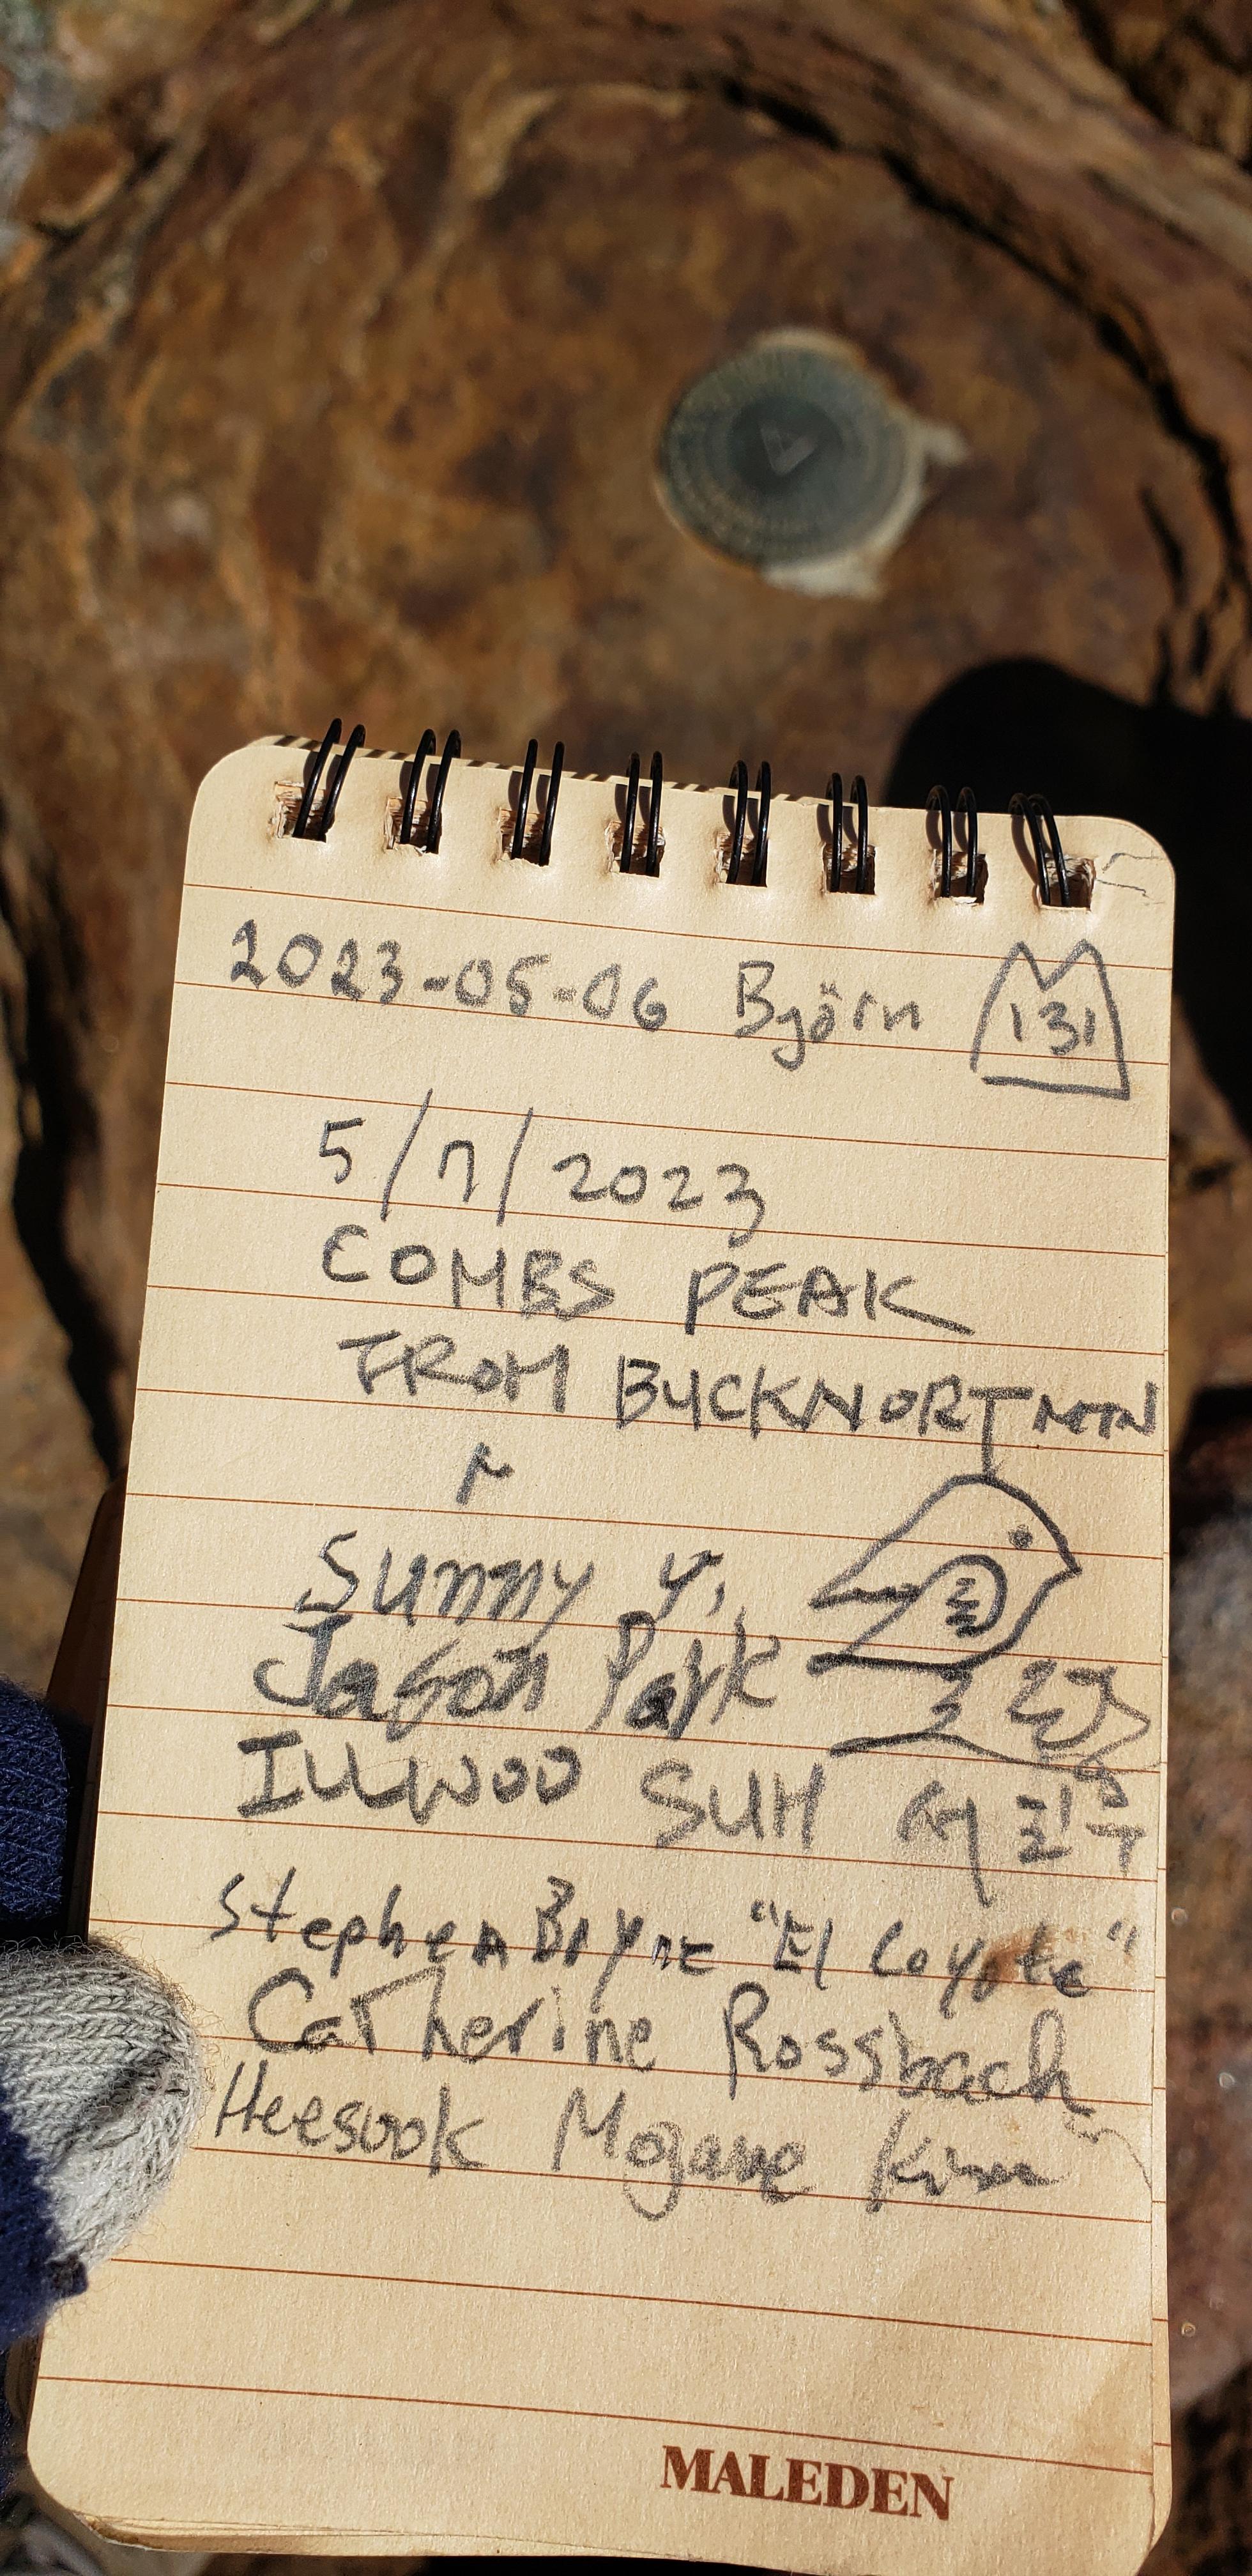 2023-05-06 Björn 131
5/7/2023
COMBS PEAK
FROM BUCKNORT MTN
Sunny Y,
Jason Park
ILLWOO SUH 서일우
Stephen Bryne "El Coyote"
Catherine Rossbach
Heesook Mojave Kim
MALEDEN